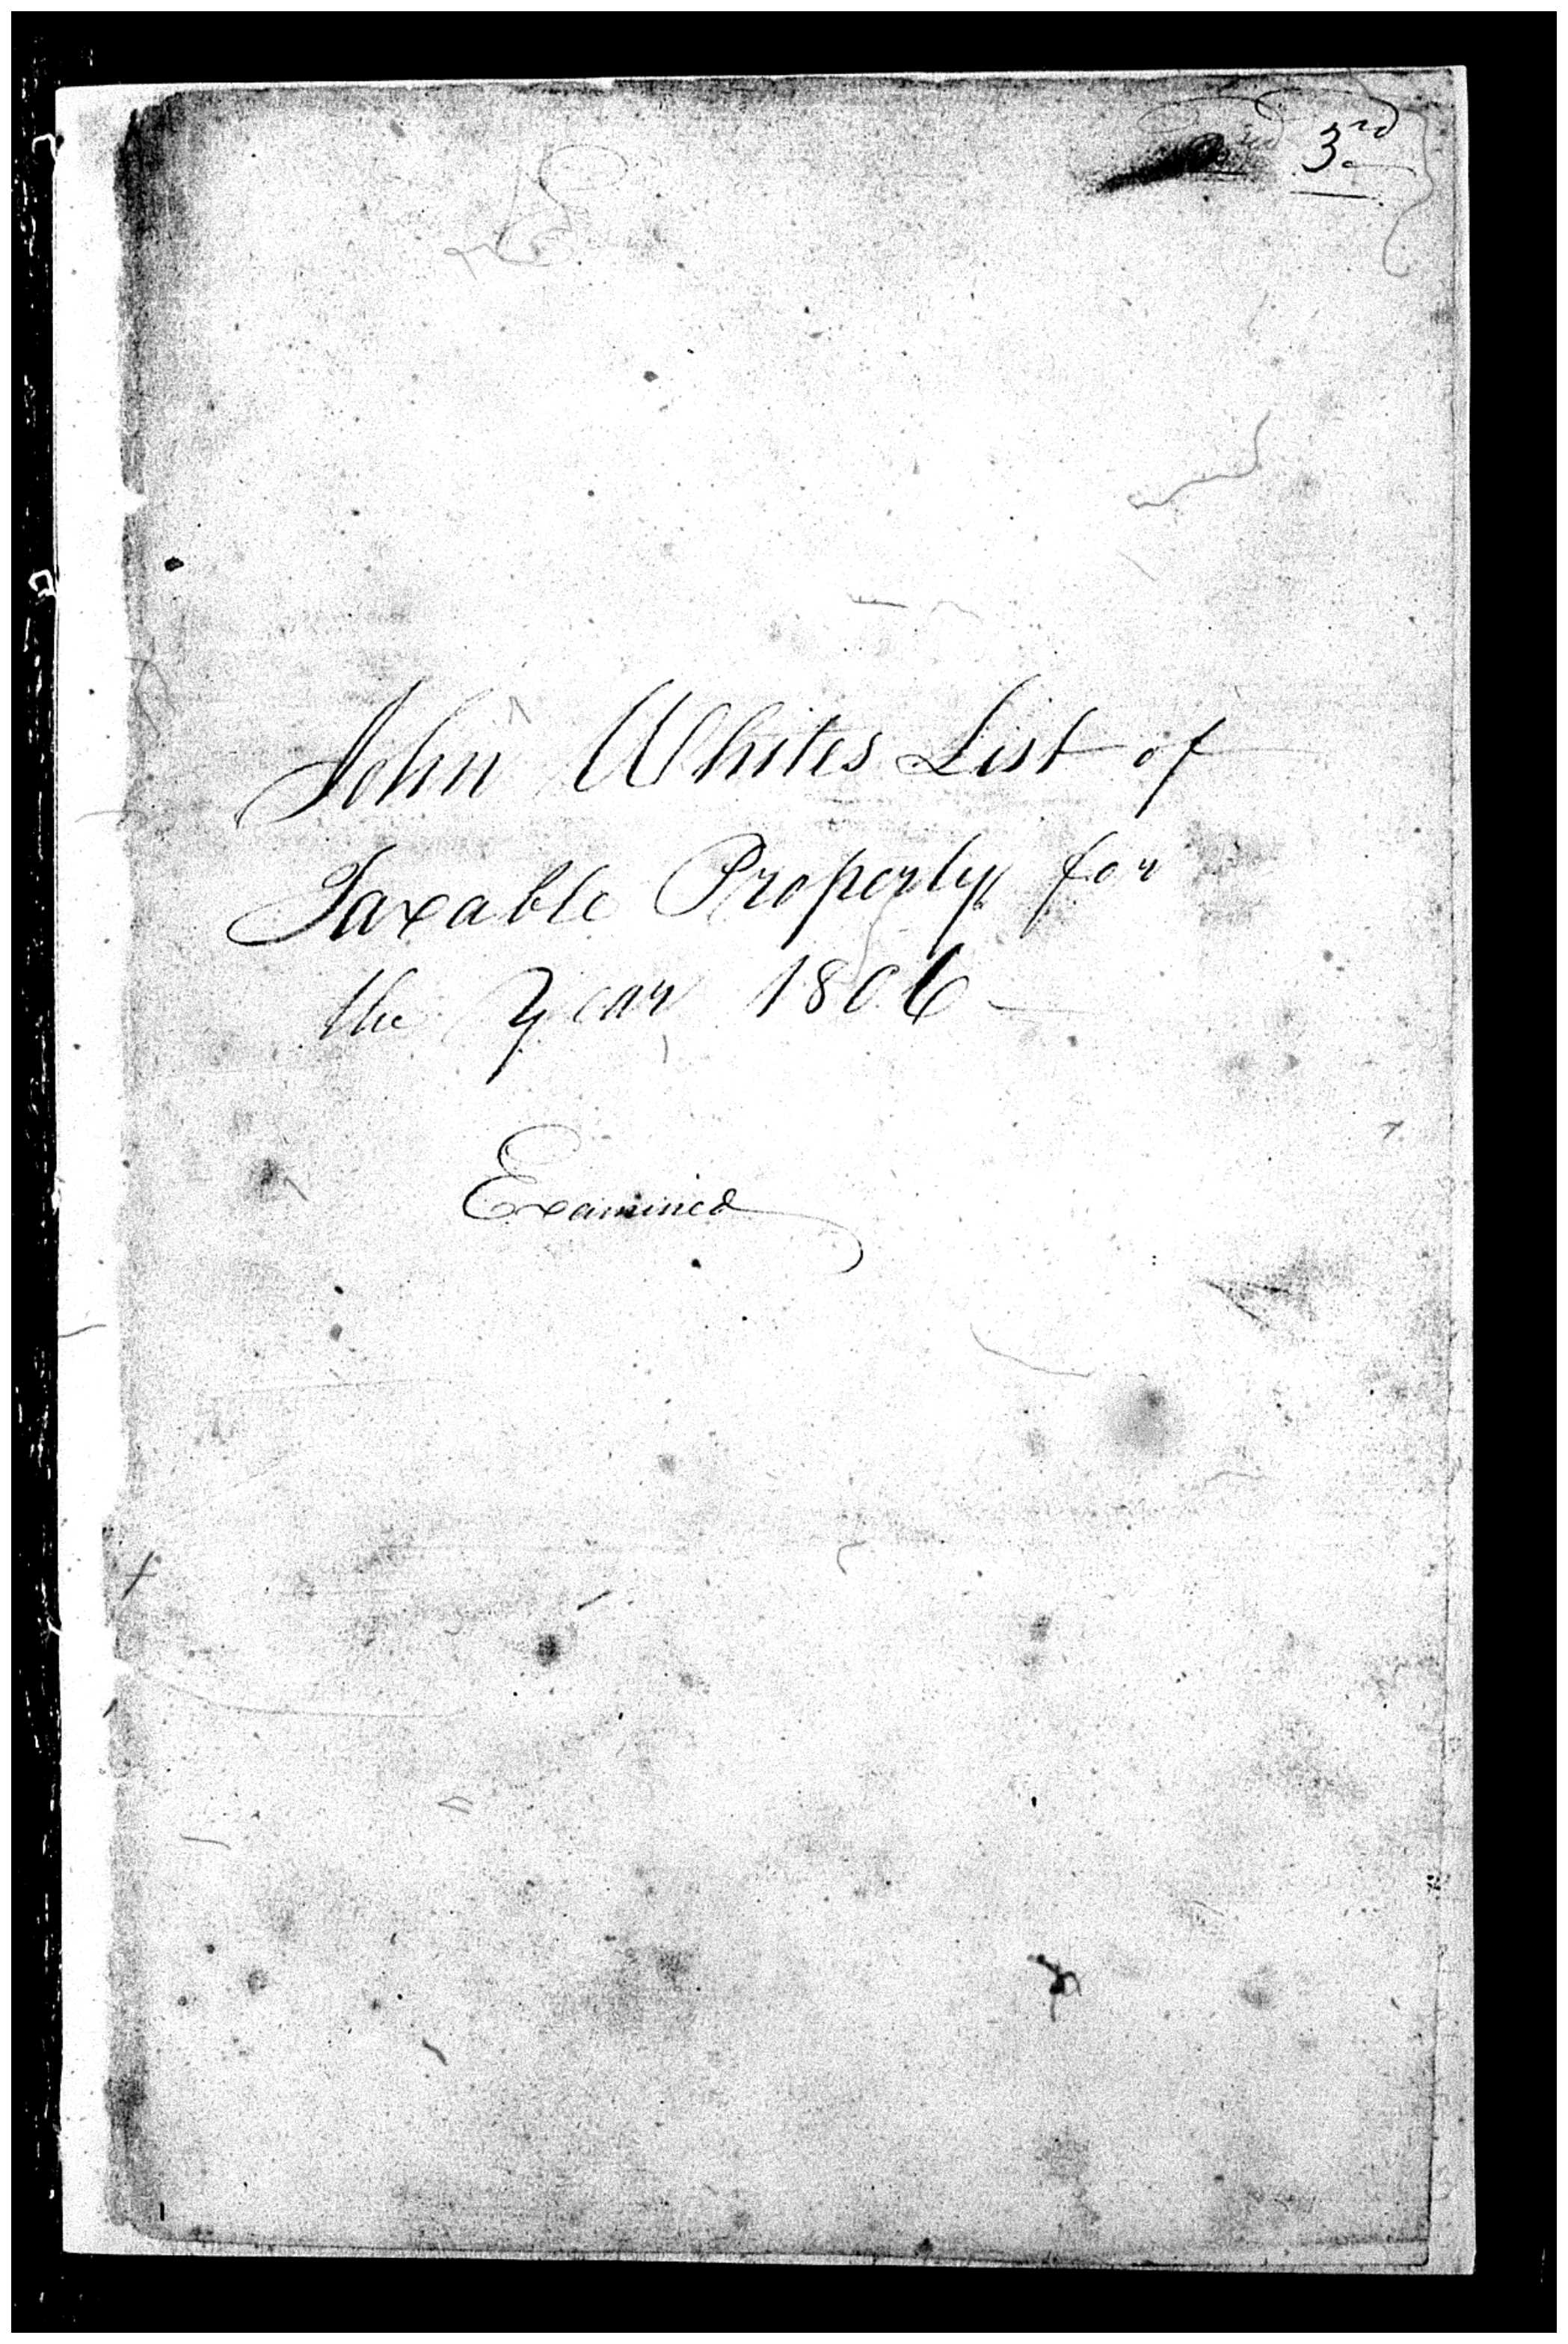 3rd
John Whites List of
Taxable Property for
the Year 1806
Examined